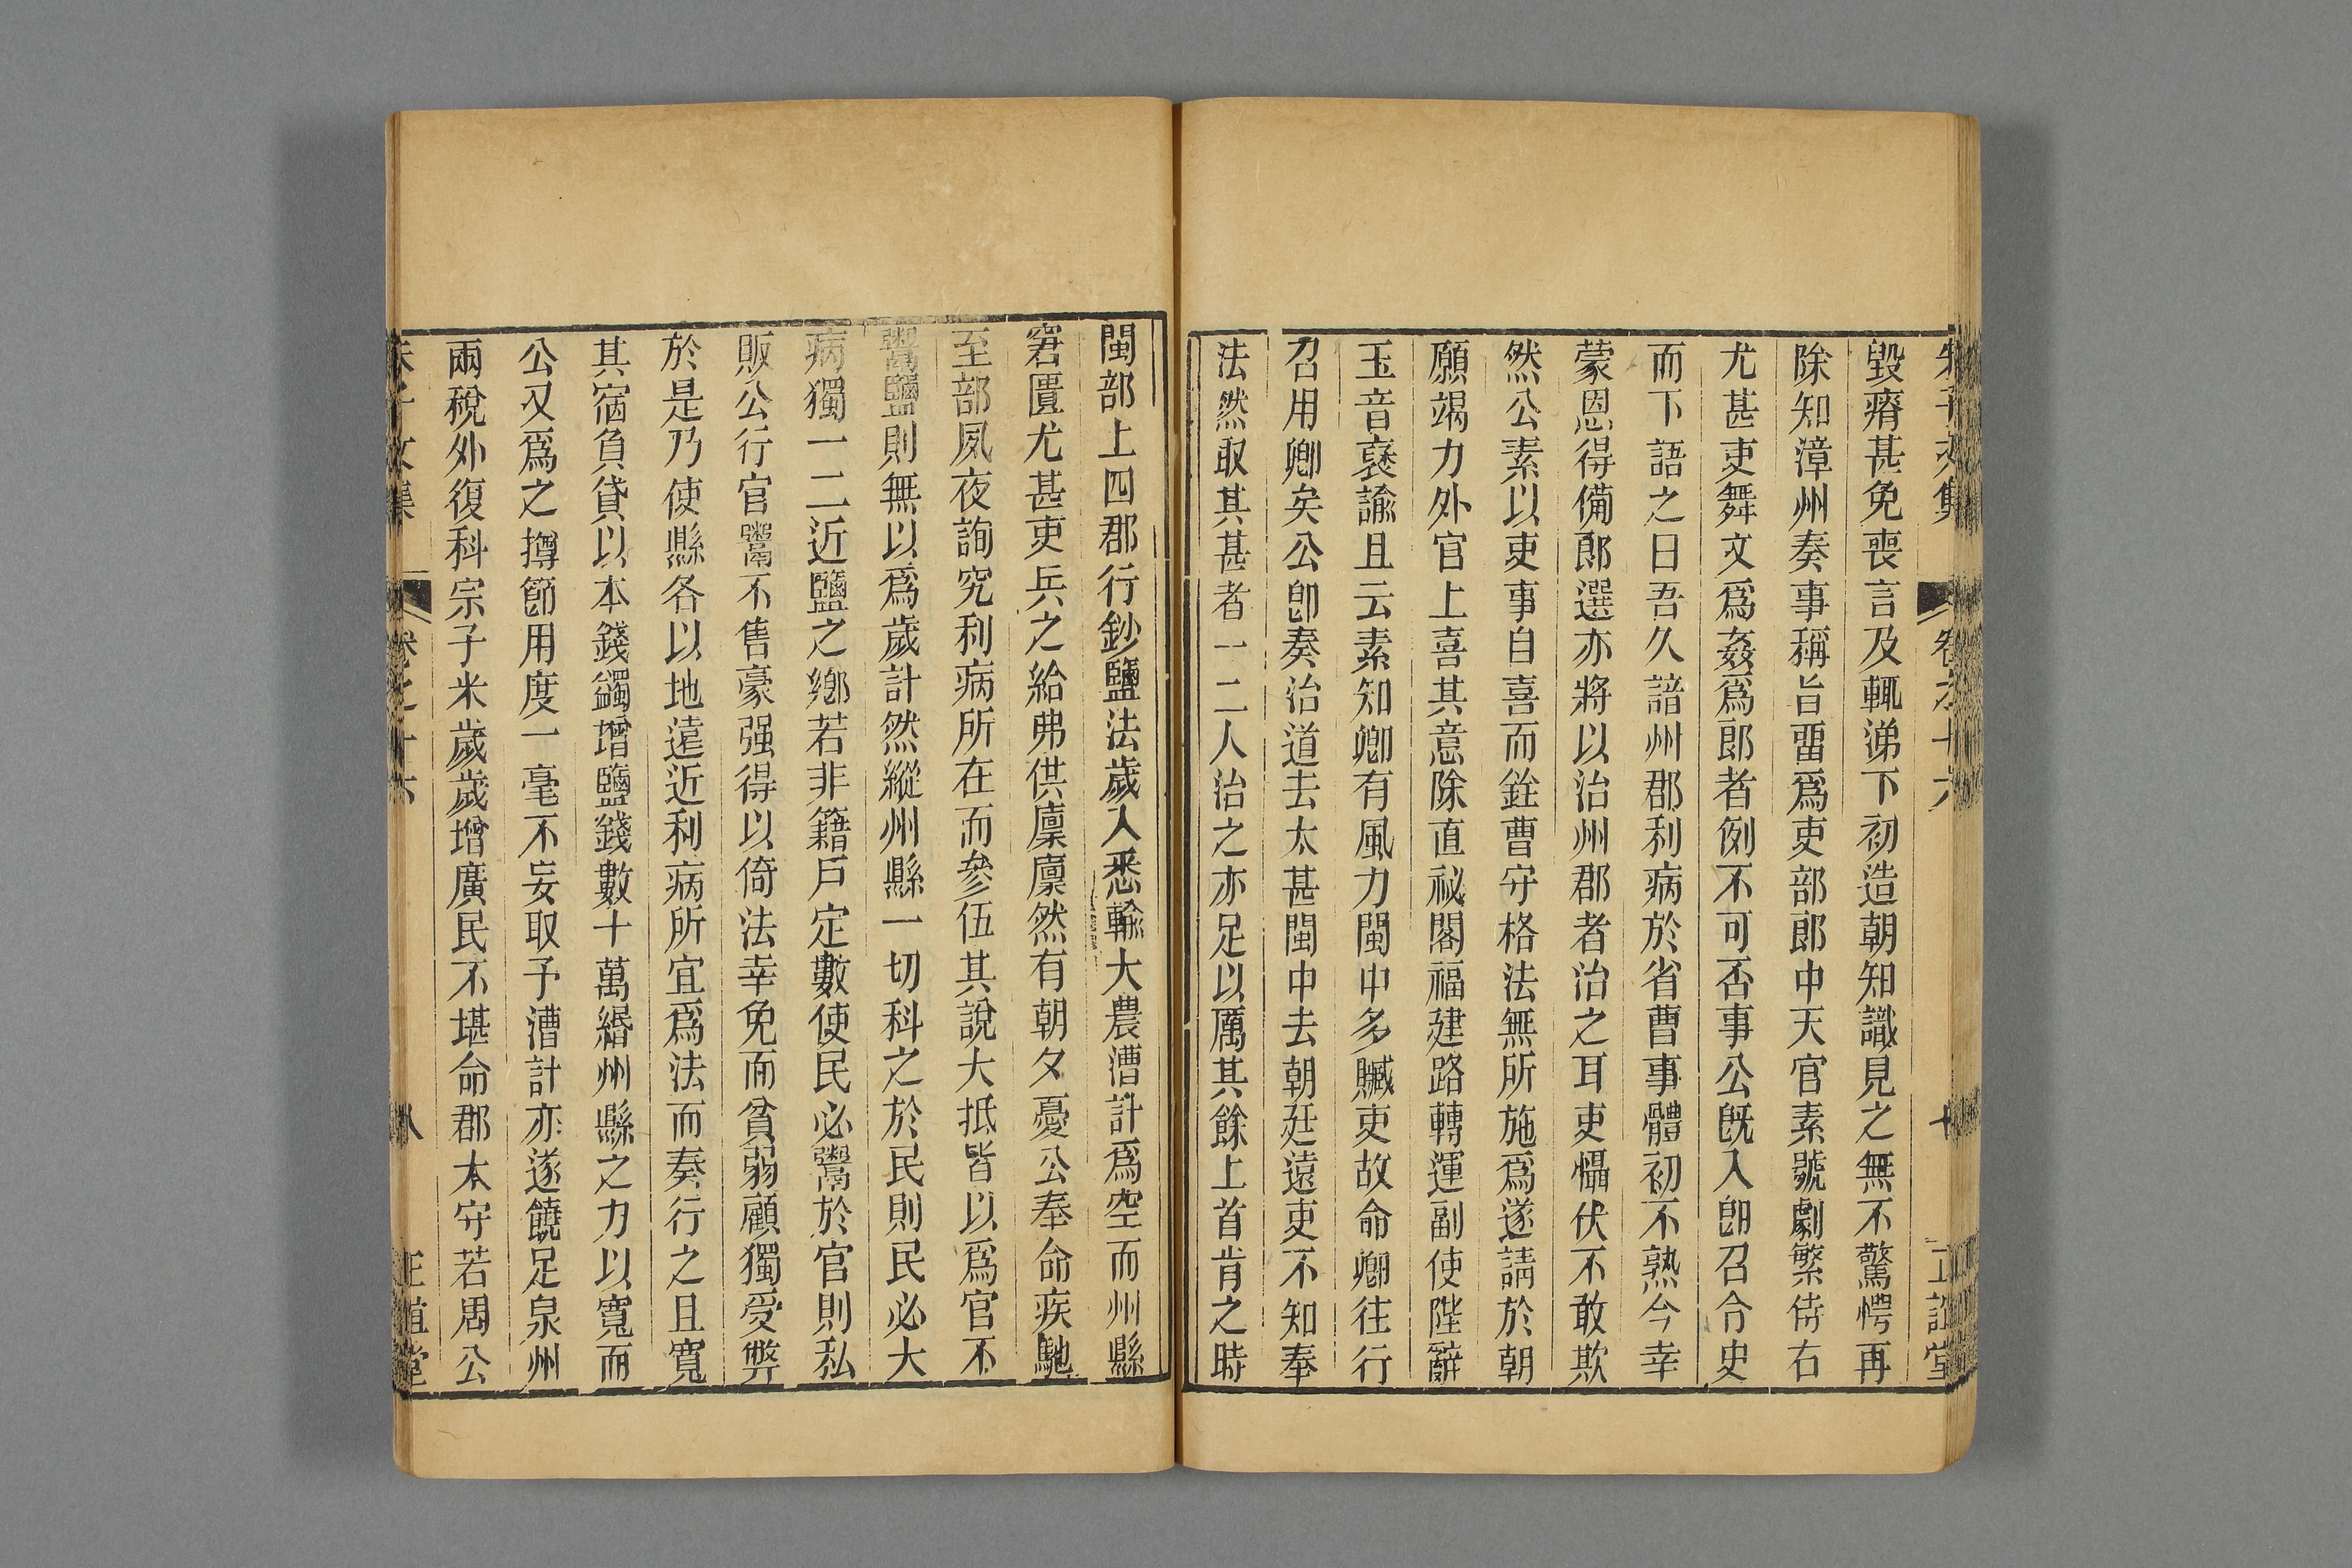 毀瘠甚免喪言及輒涕下初造朝知識見之無不驚愕再
除知漳州奏事稱旨畱爲吏部郎中天官素號劇繁侍右
尤甚吏舞文爲姦爲郎者例不可否事公旣入卽召令史
而下語之曰吾久諳州郡利病於省曹事體初不熟今幸
蒙恩得備郎選亦將以治州郡者治之耳吏懾伏不敢欺
然公素以吏事自喜而銓曹守格法無所施爲遂請於朝
願竭力外官上喜其意除直祕閣福建路轉運副使陛辭
玉音襃諭且云素知卿有風力閩中多贓吏故命卿往行
召用卿矣公卽奏治道去太甚閩中去朝廷遠吏不知奉
法然取其甚者一二人治之亦足以厲其餘上首肯之時
閩部上四郡行鈔鹽法歲入悉輸大農漕計爲空而州縣
窘匱尤甚吏兵之給弗供廩廩然有朝夕憂公奉命疾馳
至部夙夜詢究利病所在而參伍其說大抵皆以爲官不
鬻鹽則無以爲歲計然縱州縣一切科之於民則民必大
病獨一二近鹽之鄉若非籍戶定數使民必鬻於官則私
販公行官鬻不售豪强得以倚法幸免而貧弱顧獨受弊
於是乃使縣各以地遠近利病所宜爲法而奏行之且寬
其宿負貸以本錢蠲增鹽錢數十萬緡州縣之力以寬而
公又爲之撙節用度一毫不妄取予漕計亦遂饒足泉州
兩稅外復科宗子米歲歲增廣民不堪命郡太守若周公
朱子文集 卷之十六 八 正誼堂